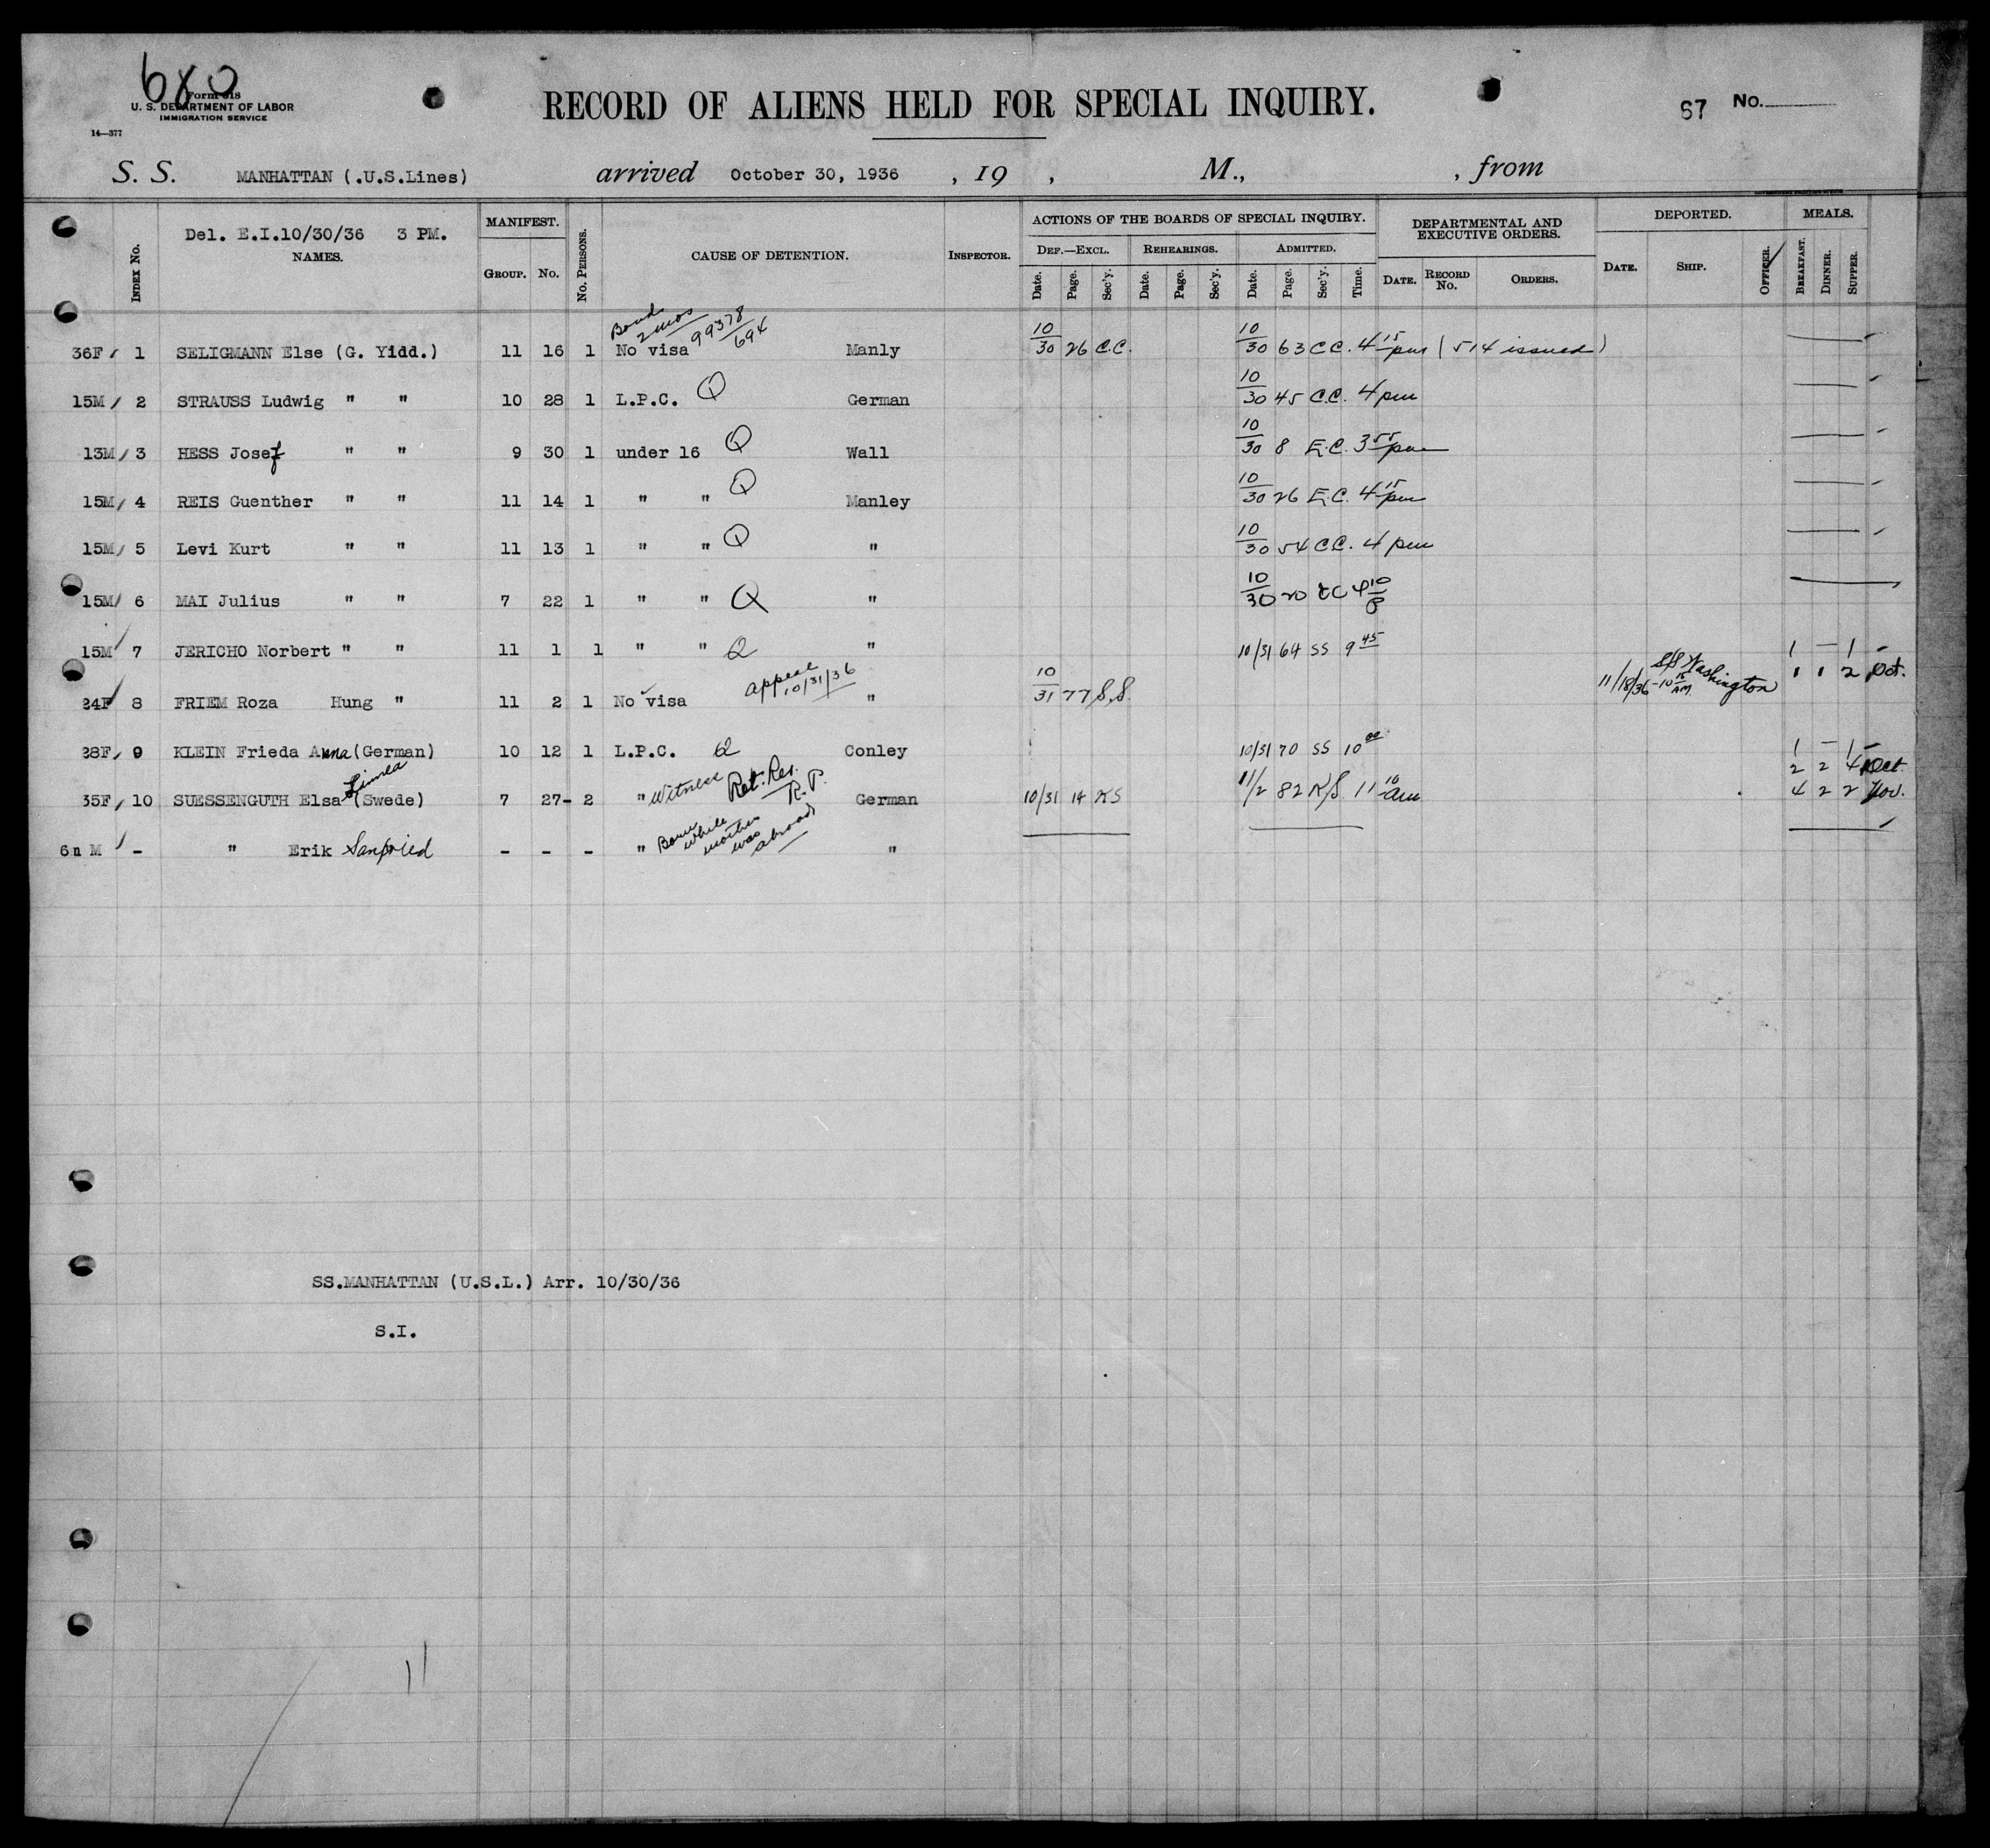 680
Form 618
U. S. DEPARTMENT OF LABOR
IMMIGRATION SERVICE
14—377
RECORD OF ALIENS HELD FOR SPECIAL INQUIRY.
67 No.
S. S. MANHATTAN (.U.S.Lines) arrived October 30, 1936 , 19 , M., , from
Index No.
Del. E.I.10/30/36 3 PM.
NAMES.
MANIFEST.
Group. No.
No. Persons.
CAUSE OF DETENTION.
Inspector.
ACTIONS OF THE BOARDS OF SPECIAL INQUIRY.
Def.—Excl. Rehearings. Admitted.
Date. Page. Sec'y. Date. Page. Sec'y. Date. Page. Sec'y. Time.
DEPARTMENTAL AND EXECUTIVE ORDERS.
Date. Record No. Orders.
DEPORTED.
Date. Ship. Officer.
MEALS.
Breakfast. Dinner. Supper.
Bond 2 mos 99378/694
36F 1 SELIGMANN Else (G. Yidd.) 11 16 1 No visa Manly 10/30 26 C.C. 10/30 63 C.C. 4 15 pm (514 issued)
15M 2 STRAUSS Ludwig " " 10 28 1 L.P.C. Q German 10/30 45 C.C. 4 pm
13M 3 HESS Josef " " 9 30 1 under 16 Q Wall 10/30 8 E.C. 3 55 pm
15M 4 REIS Guenther " " 11 14 1 " " Q Manley 10/30 26 E.C. 4 15 pm
15M 5 Levi Kurt " " 11 13 1 " " Q " 10/30 54 C.C. 4 pm
15M 6 MAI Julius " " 7 22 1 " " Q " 10/30 20 EC 4 10 P
15M 7 JERICHO Norbert " " 11 1 1 " " Q " 10/31 64 SS 9 45 1 — 1 —
24F 8 FRIEM Roza Hung " 11 2 1 No visa appeal 10/31/36 " 10/31 77 S.S. 11/18/36-10 15 AM. S/S Washington 1 1 2 Oct.
28F 9 KLEIN Frieda Anna (German) 10 12 1 L.P.C. Q Conley 10/31 70 SS 10 00 1 — 1 —
2 2 4 Oct.
35F 10 SUESSENGUTH Elsa Linnea (Swede) 7 27- 2 " Witness Ret. Res. R.P. German 10/31 14 KS 11/2 82 K/S 11 10 am 4 2 2 Nov.
6n M - " Erik - - - " Born while mother was abroad "
SS.MANHATTAN (U.S.L.) Arr. 10/30/36
S.I.
11